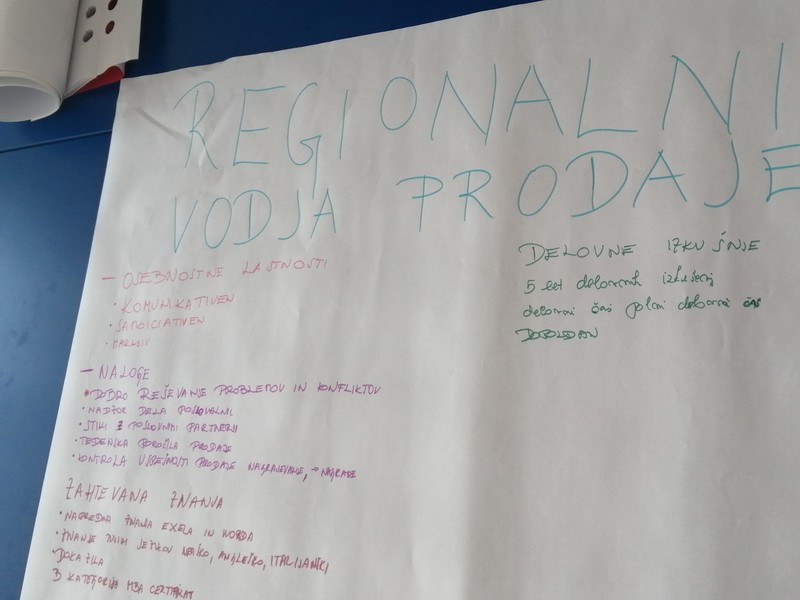 REGIONALNI
VODJA PRODAJE
- OSEBNOSTNE LASTNOSTI
• KOMUNIKATIVEN
• SAMOICIATIVEN
• MARLJIV
- NALOGE
• DOBRO REŠEVANJE PROBLEMOV IN KONFLIKTOV
• NADZOR DELA
• STIKI Z POSLOVNIMI PARTNERJI
• TEDENSKA POROČILA PRODAJE
• KONTROLA USPEŠNOSTI PRODAJE NAGRAJEVANJE, → NAGRADE
ZAHTEVANA ZNANJA
• NAPREDNA ZNANJA EXELA IN WORDA
• ZNANJE TUJIH JEZIKOV ANGLEŠKO, ITALIJANSKI
• DOKAZILA
B KATEGORIJA MBA CERTIFIKAT
DELOVNE IZKUŠNJE
5 let delovnih izkušenj
delovni čas polni delovni čas
DOPOLDAN